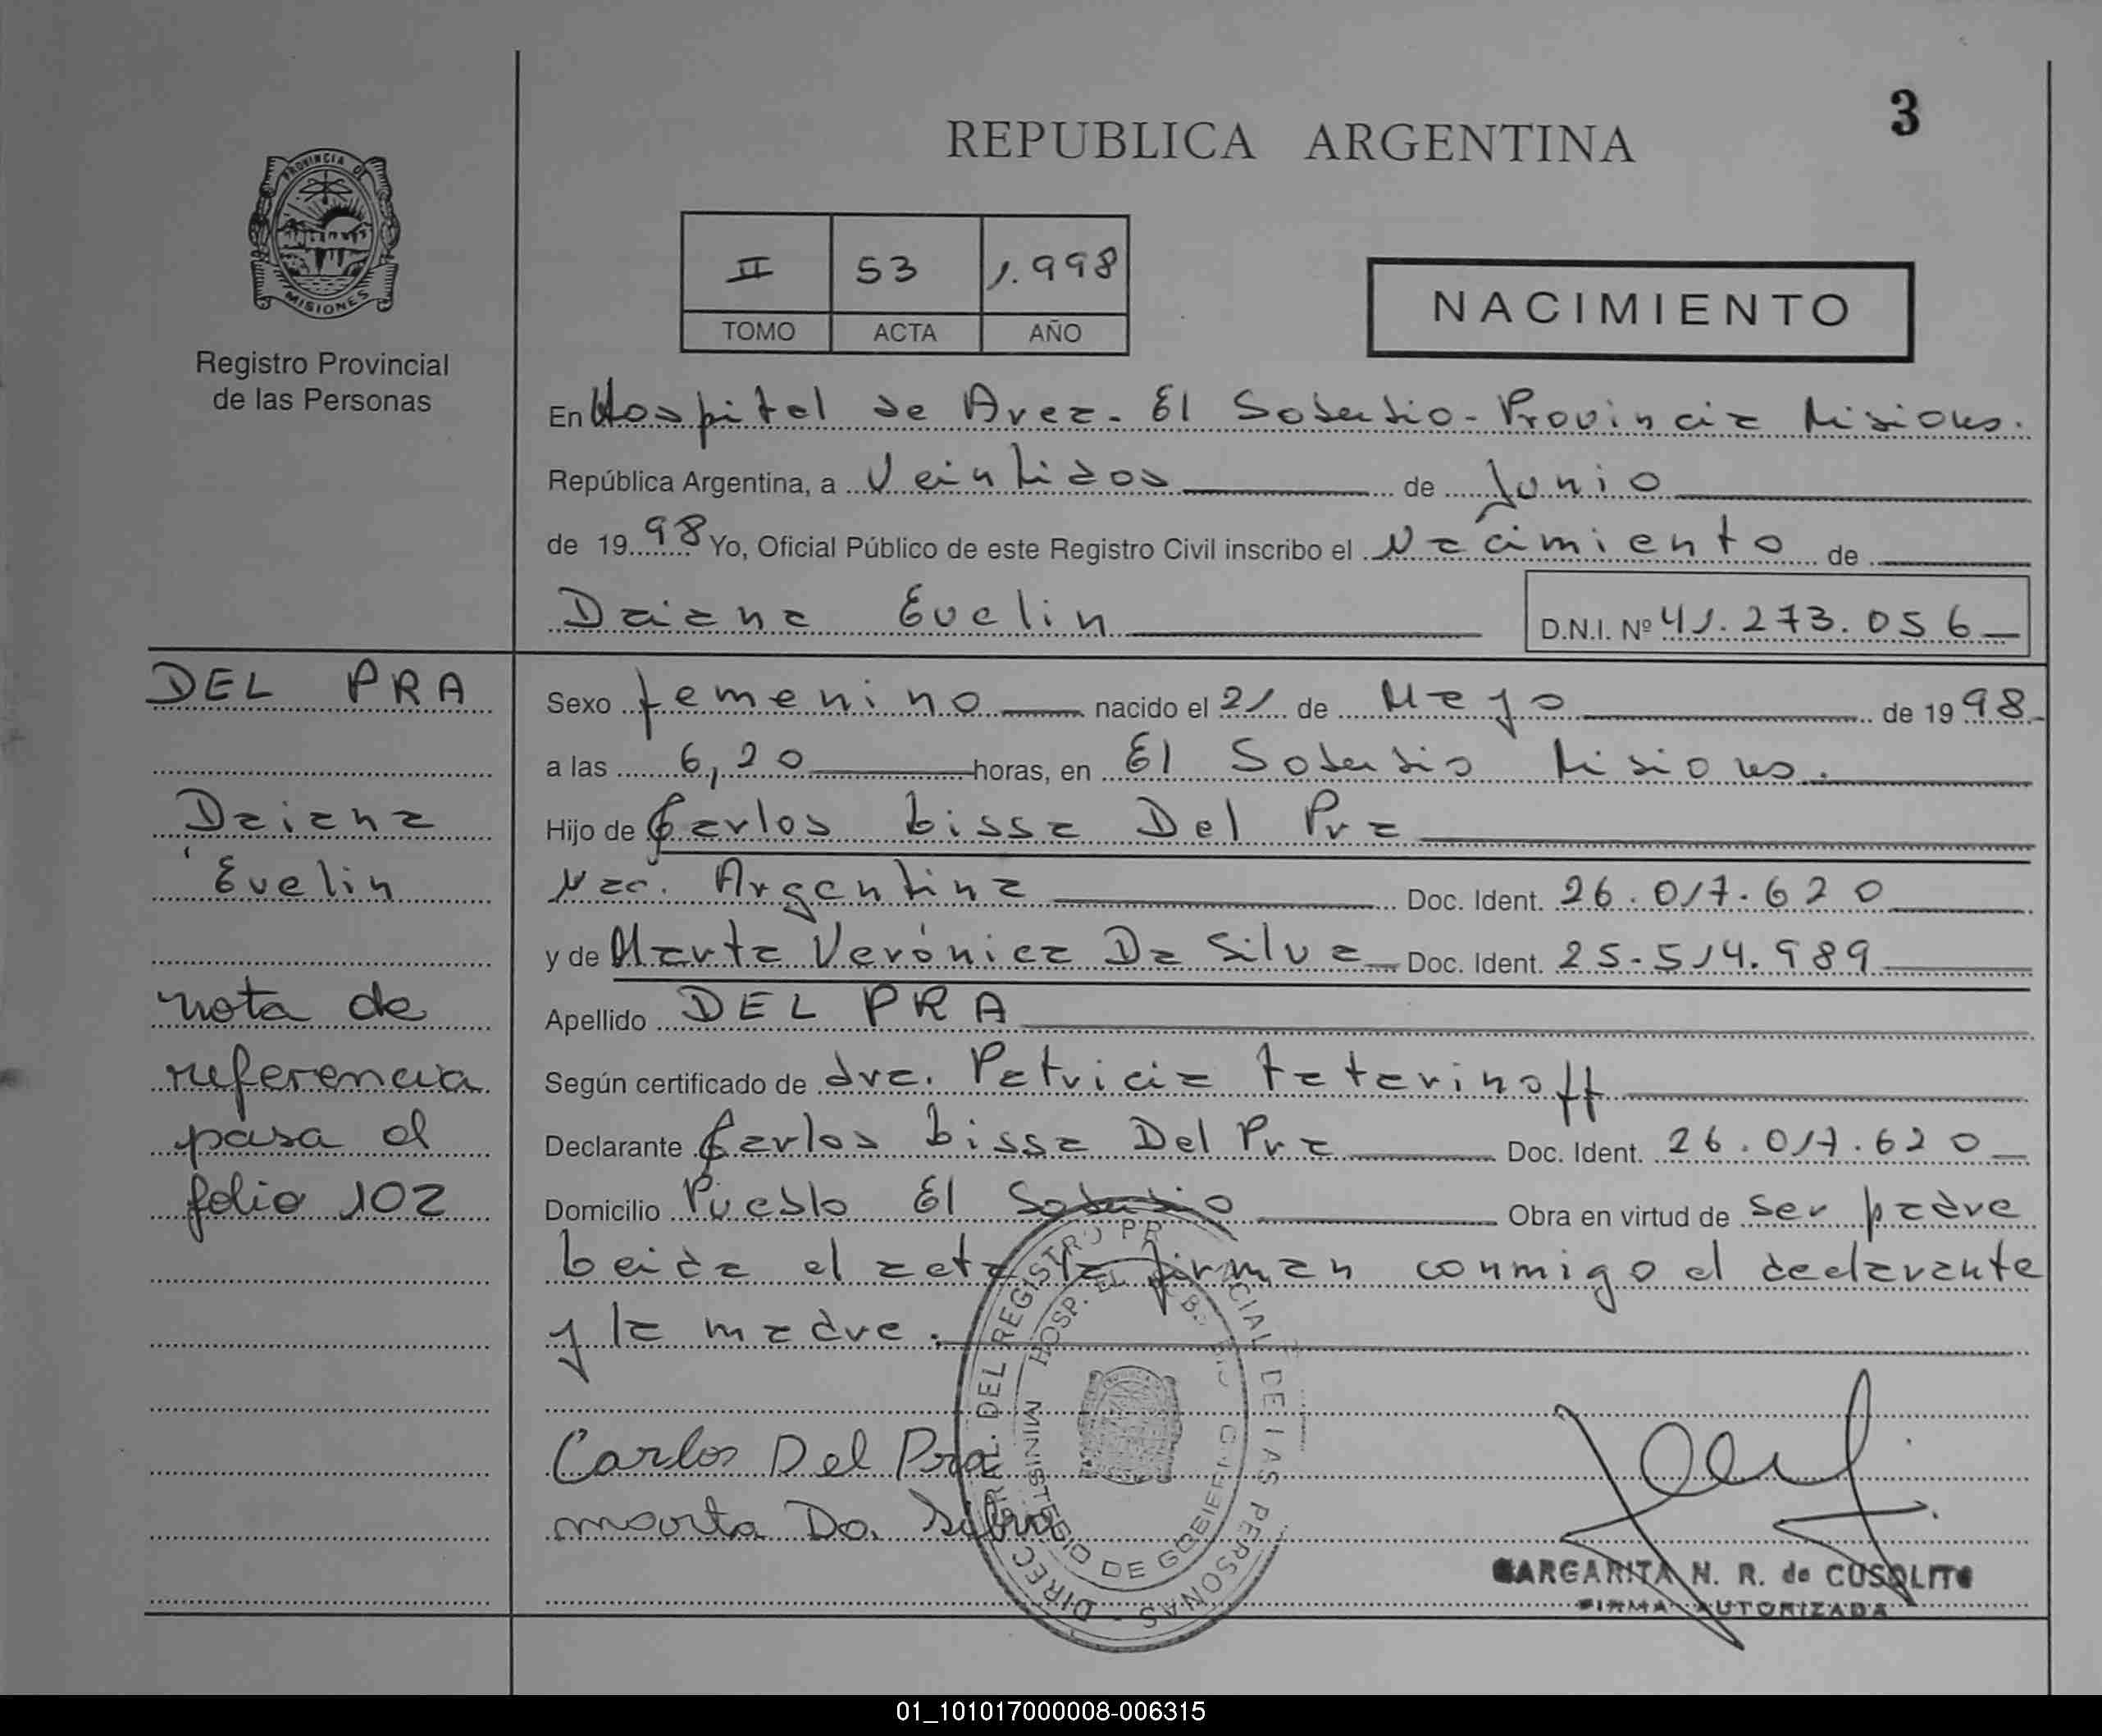 3
REPUBLICA ARGENTINA
PROVINCIA DE
MISIONES
Registro Provincial
de las Personas
II 53 1.998
TOMO ACTA AÑO
NACIMIENTO
En Hospital de Area - El Soberbio - Provincia Misiones.
República Argentina, a Veintidos de Junio
de 1998 Yo, Oficial Público de este Registro Civil inscribo el Nacimiento de
Daiana Evelin D.N.I. Nº 41.273.056
DEL PRA
Daiana
Evelin
nota de
referencia
pasa al
folio 102
Sexo femenino nacido el 21 de Mayo de 1998
a las 6,20 horas, en El Soberbio Misiones.
Hijo de Carlos Lissa Del Pra
Nac. Argentina Doc. Ident. 26.017.620
y de Marta Verónica Da Silva Doc. Ident. 25.514.989
Apellido DEL PRA
Según certificado de dra. Patricia Fatarinoff
Declarante Carlos Lissa Del Pra Doc. Ident. 26.017.620
Domicilio Pueblo El Soberbio Obra en virtud de ser padre
Leida el acta la firman conmigo el declarante
y la madre.
Carlos Del Pra
marta Da Silva
DIREC. GRAL. DEL REGISTRO PROVINCIAL DE LAS PERSONAS
HOSP. EL SOBERBIO
MINISTERIO DE GOBIERNO
MARGARITA N. R. de CUSOLITO
FIRMA AUTORIZADA
01_101017000008-006315